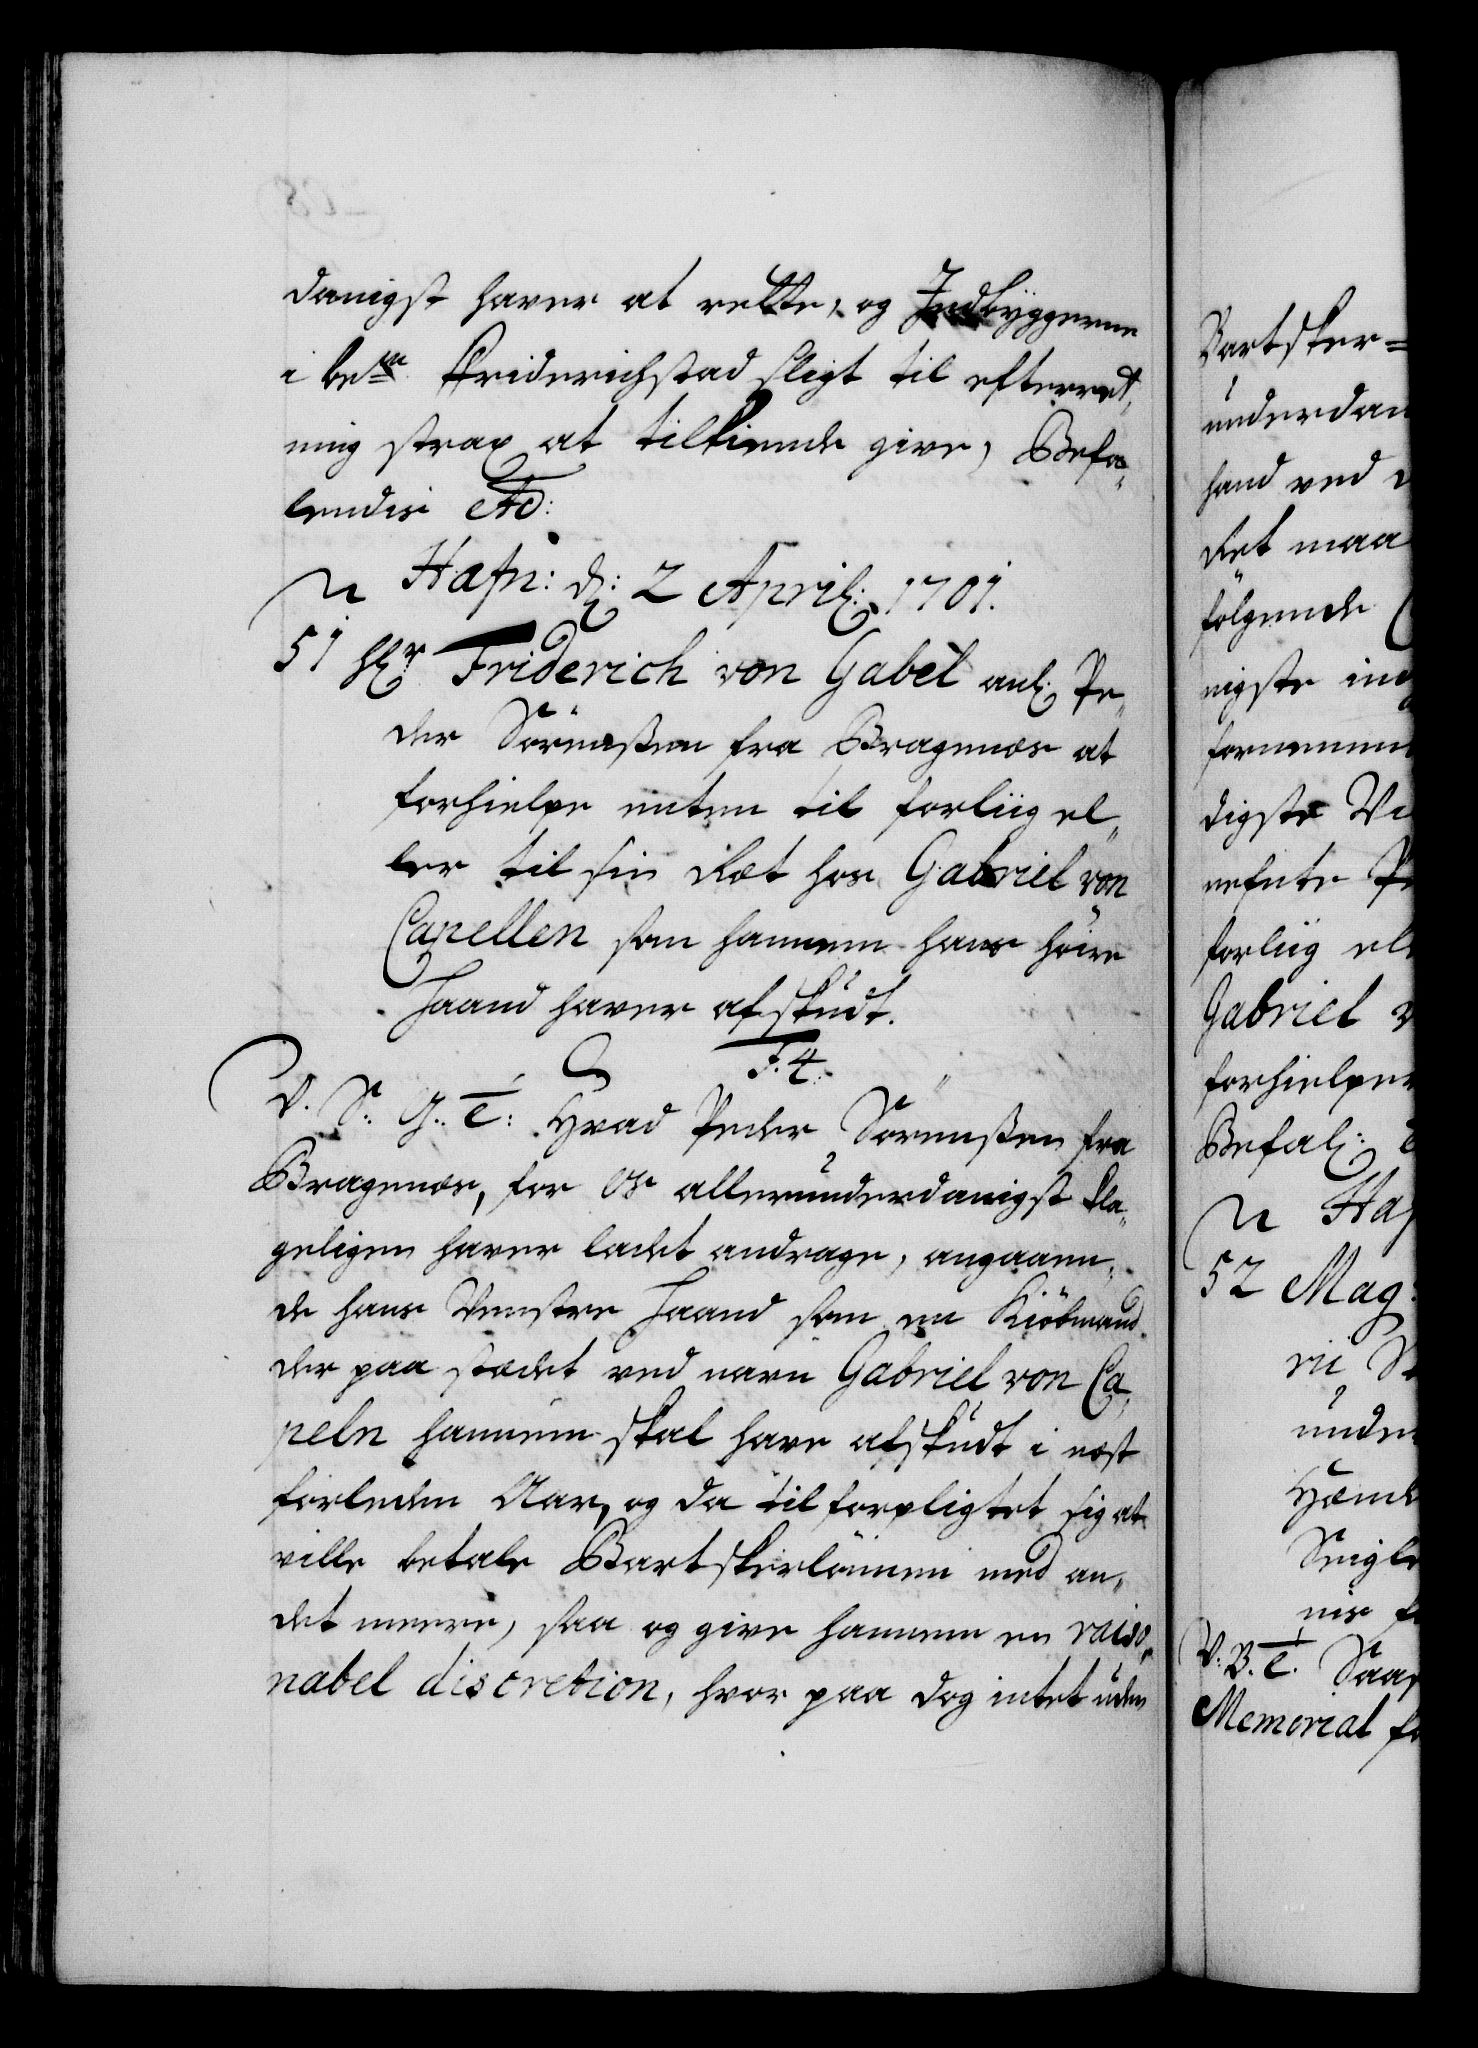 danigst haver at rette, og Indbyggerne
i bem Friderichstad sligt til efterret,,
ning strax at tilkiende give, Befa,,
lendis etc:
Hafn: d: 2 April: 1701.
51 Hr Friderich von Gabel anl: Pe,,
der Sörenssen fra Bragenæs at
forhielpe enten til forliig el,,
ler til sin Ræt hos Gabriel von
Capellen som hannem hans höire
Haand haver afskudt.
F. 4.
V. S: G: T: Hvad Peder Sörenssen fra
Bragenæs, for os allerunderdanigst kla,,
geligen haver ladet andrage, angaaen,,
de hans Venstre Haand som en Kiöbmand
der paa stædet ved navn Gabriel von Ca,,
peln hannem skal have afskudt i næst
forleden Aar, og da tilforpligtet sig at
ville betale Bartskerlönnen med an,,
det meere, saa og give hannem en raiso,,
nabel discretion, hvor paa dog intet uden
Bartsker=
underdan
hand ved
Det maa
fölgende
nigste
fornemme
digste
nefnte Pe
forliig el
Gabriel v
forhielpe
Befal:
Haf
52 Mag:
under
V. B. T. Saas
Memorial